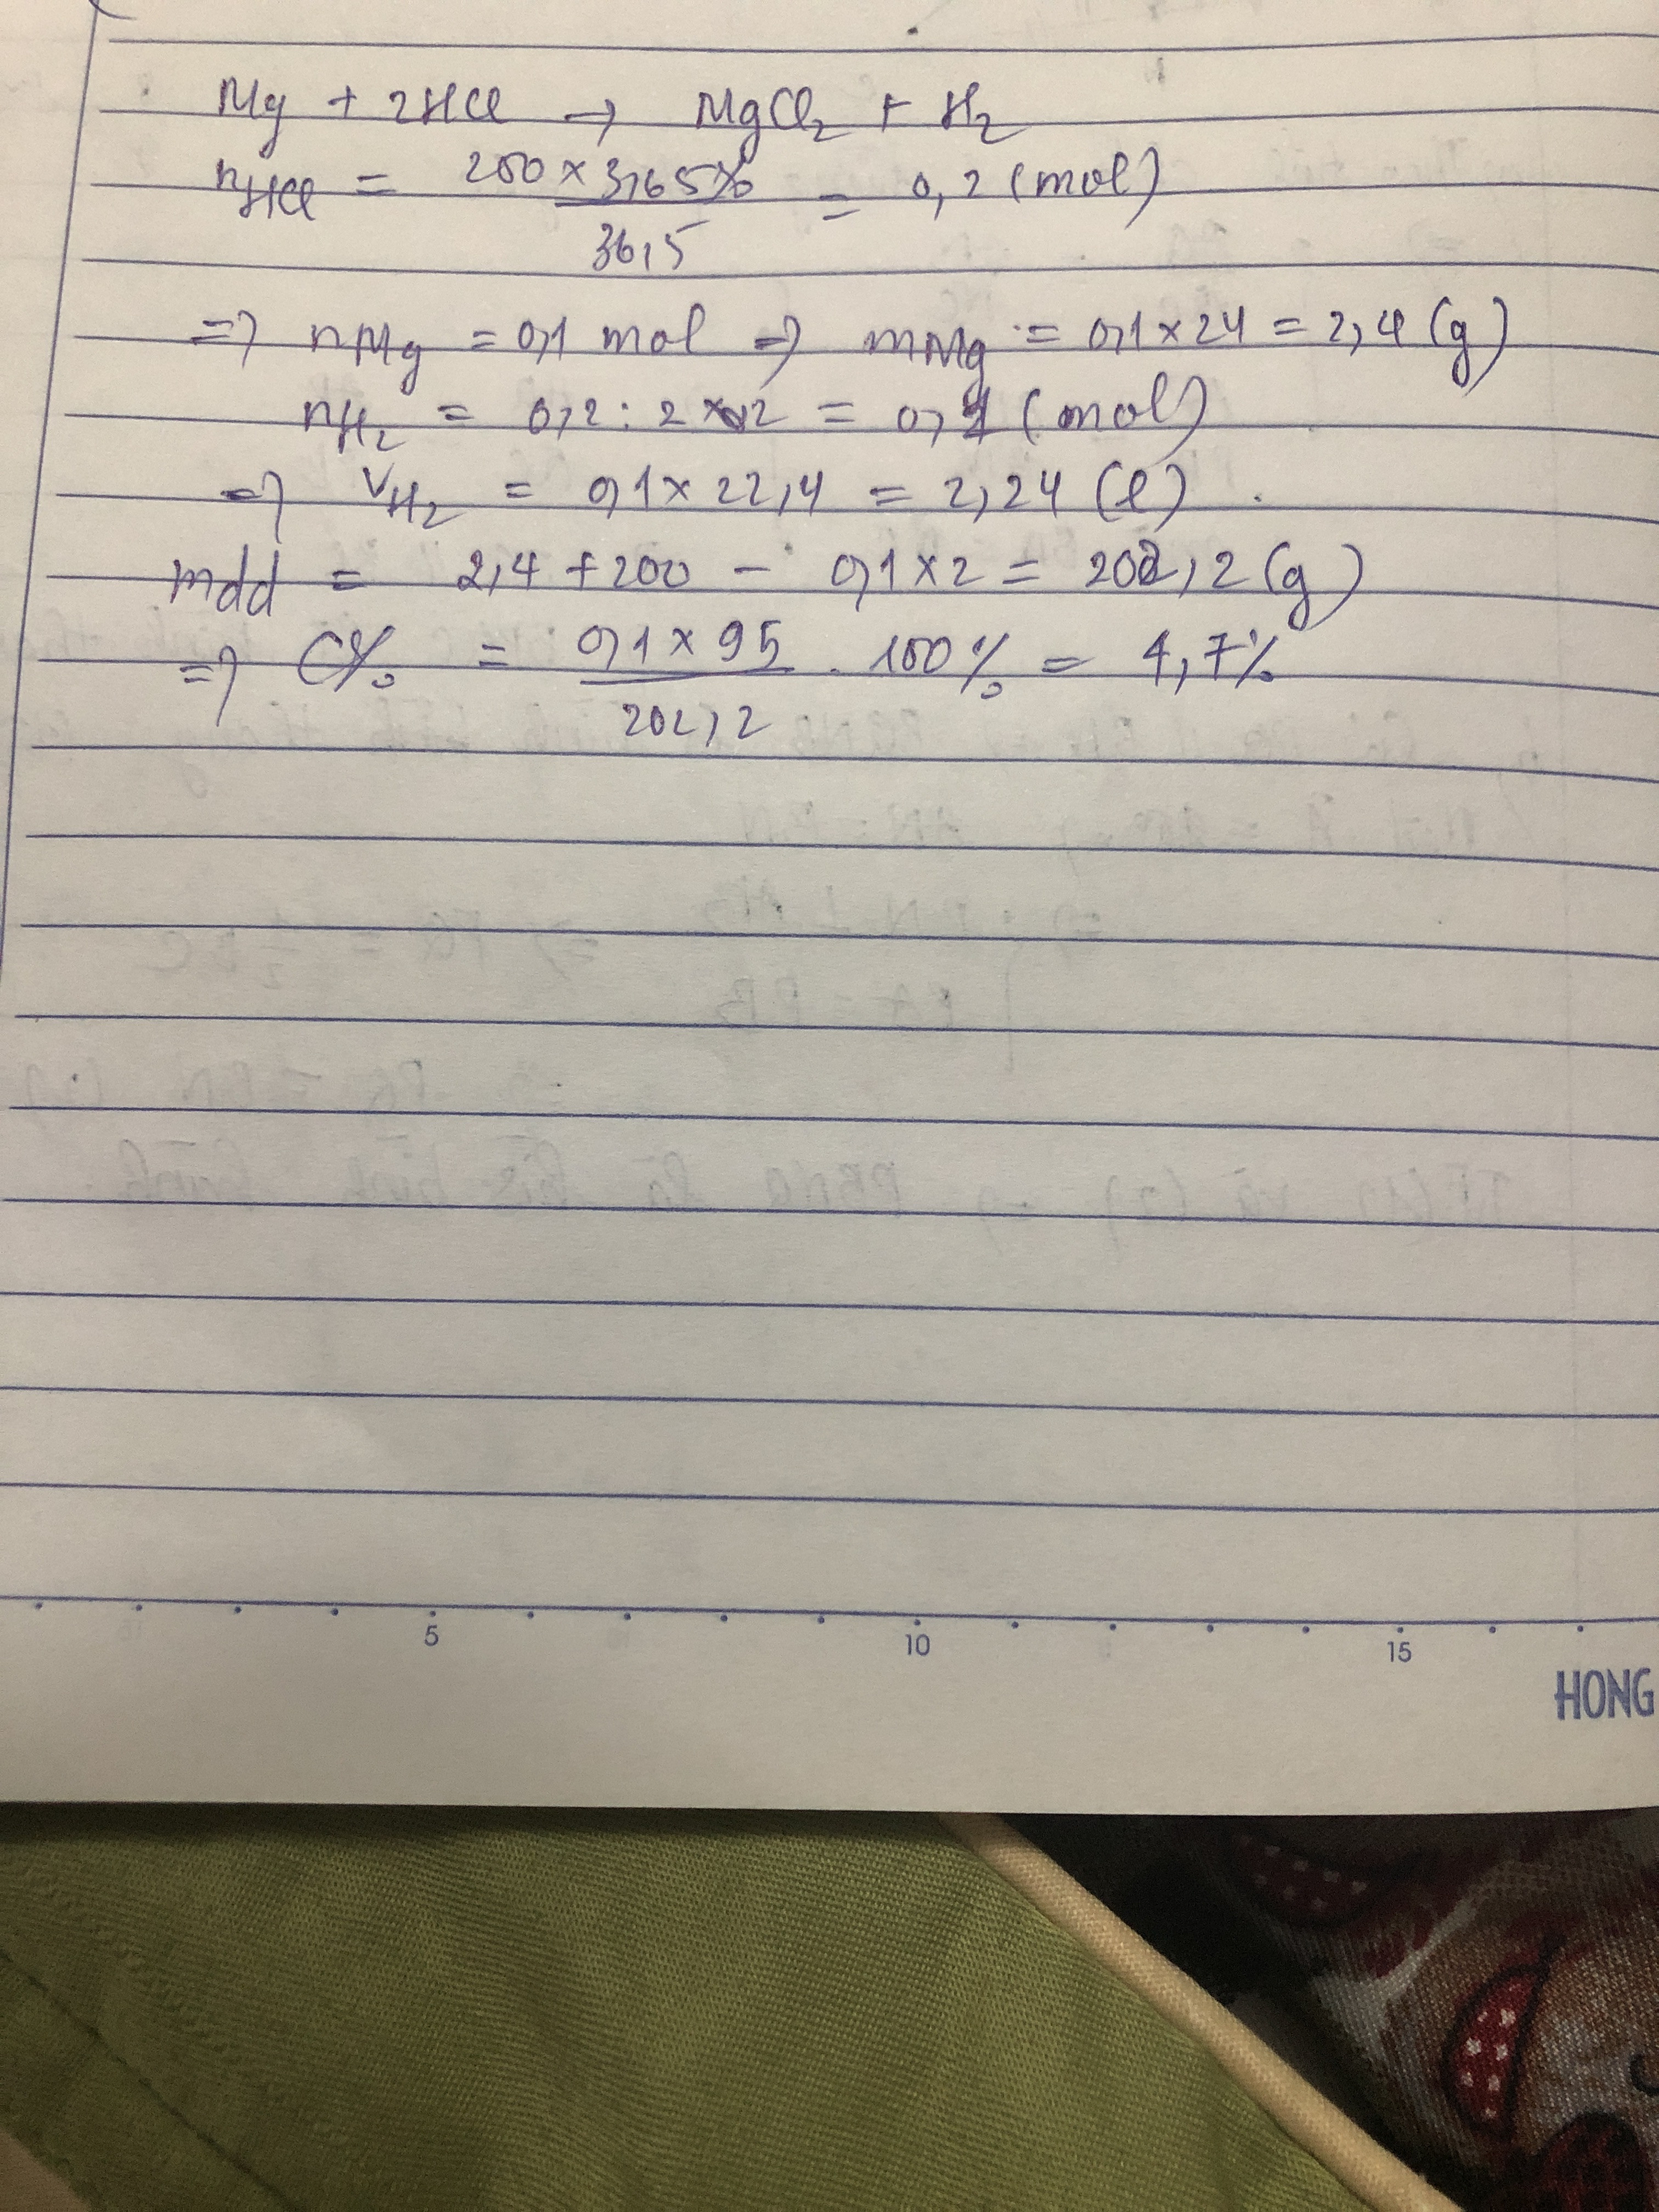 Mg + 2HCl → MgCl₂ + H₂
nHCl = 200 × 3,65% / 36,5 = 0,2 (mol)
=> nMg = 0,1 mol => mMg = 0,1 × 24 = 2,4 (g)
nH₂ = 0,2 : 2 = 0,1 (mol)
=> VH₂ = 0,1 × 22,4 = 2,24 (l).
mdd = 2,4 + 200 - 0,1 × 2 = 202,2 (g)
=> C% = 0,1 × 95 / 202,2 . 100% = 4,7%
5 10 15
HONG